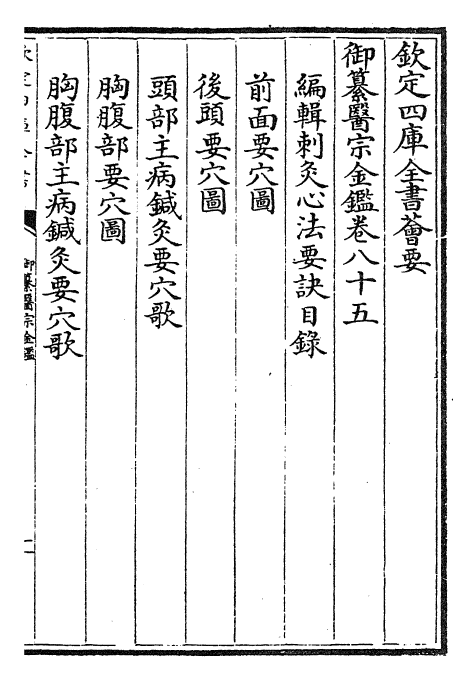 欽定四庫全書薈要
御纂醫宗金鑑卷八十五
編輯刺灸心法要訣目錄
前面要穴圖
後頭要穴圖
頭部主病鍼灸要穴歌
胸腹部要穴圖
胸腹部主病鍼灸要穴歌
御纂醫宗金鑑